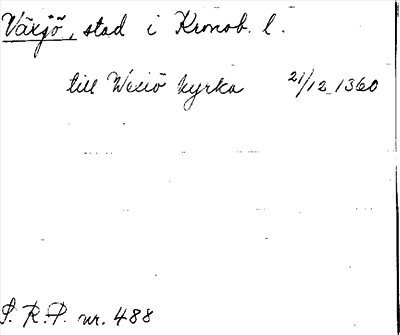 Växjö, stad i Kronob. l.
till Wexiö kyrka 21/12 1360
S. R. P. nr. 488